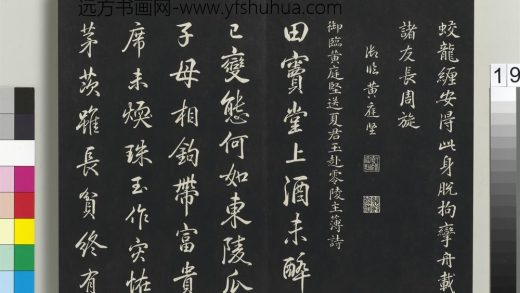 远方书画网-www.yfshuhua.com
19
蛟龍纏安得此身脫拘攣舟載
諸友長周旋
御臨黃庭堅
御臨黃庭堅送夏君玉赴零陵主簿詩
田竇堂上酒未醉
已變態何如東陵瓜
子母相鉤帶富貴
席未煖珠玉作灾怪
茅茨雖長貧終有